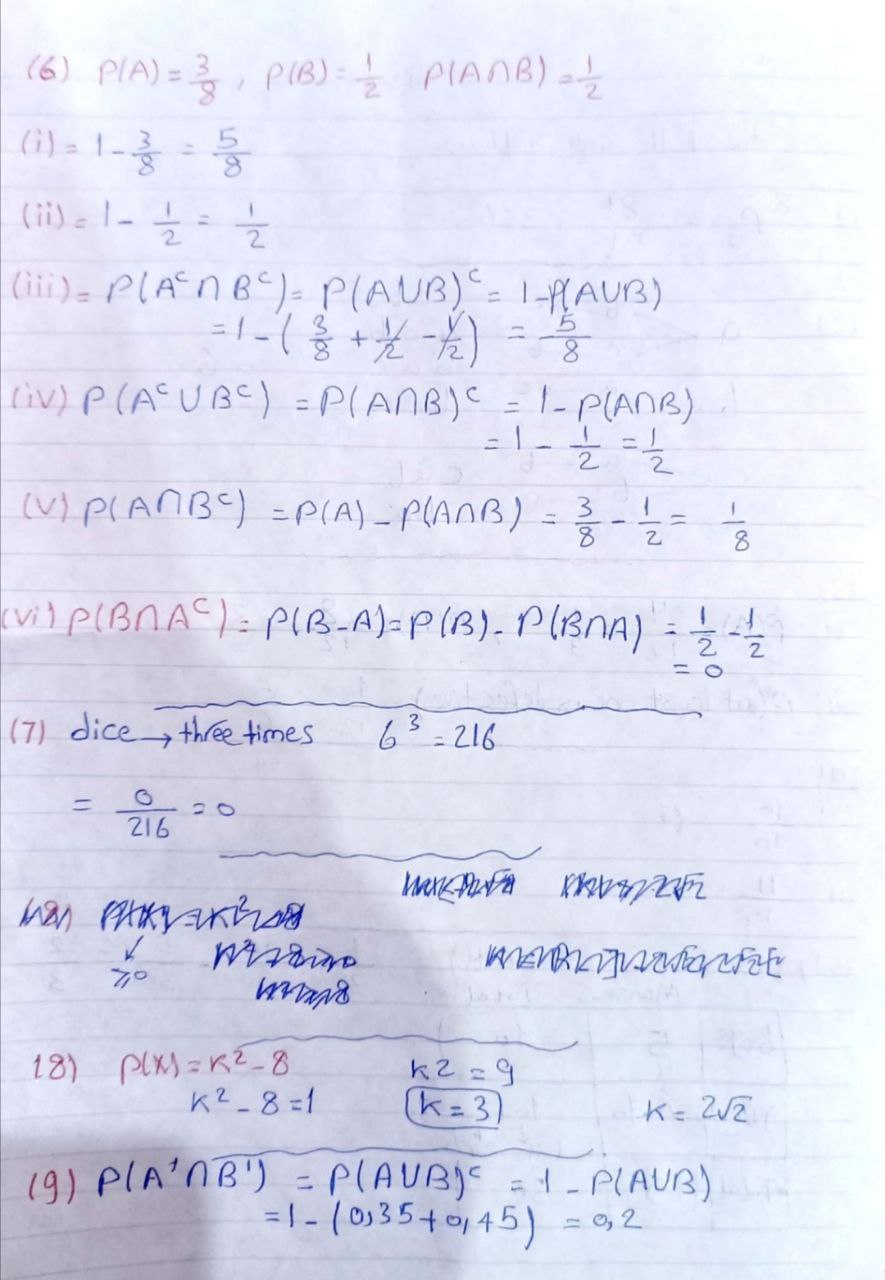 (6) P(A) = 3/8 , P(B) = 1/2 P(A∩B) = 1/2
(i) = 1 - 3/8 = 5/8
(ii) = 1 - 1/2 = 1/2
(iii) = P(Aᶜ∩Bᶜ) = P(A∪B)ᶜ = 1-P(A∪B)
= 1 - (3/8 + 1/2 - 1/2) = 5/8
(iv) P(Aᶜ∪Bᶜ) = P(A∩B)ᶜ = 1-P(A∩B)
= 1 - 1/2 = 1/2
(v) P(A∩Bᶜ) = P(A) - P(A∩B) = 3/8 - 1/2 = 1/8
(vi) P(B∩Aᶜ) = P(B-A) = P(B) - P(B∩A) = 1/2 - 1/2
= 0
(7) dice → three times 6³ = 216
= 0/216 = 0
≥0
18) P(X) = K² - 8 K2 = 9
K² - 8 = 1 K = 3 K = 2√2
(9) P(A'∩B') = P(A∪B)ᶜ = 1 - P(A∪B)
= 1 - (0,35 + 0,45) = 0,2